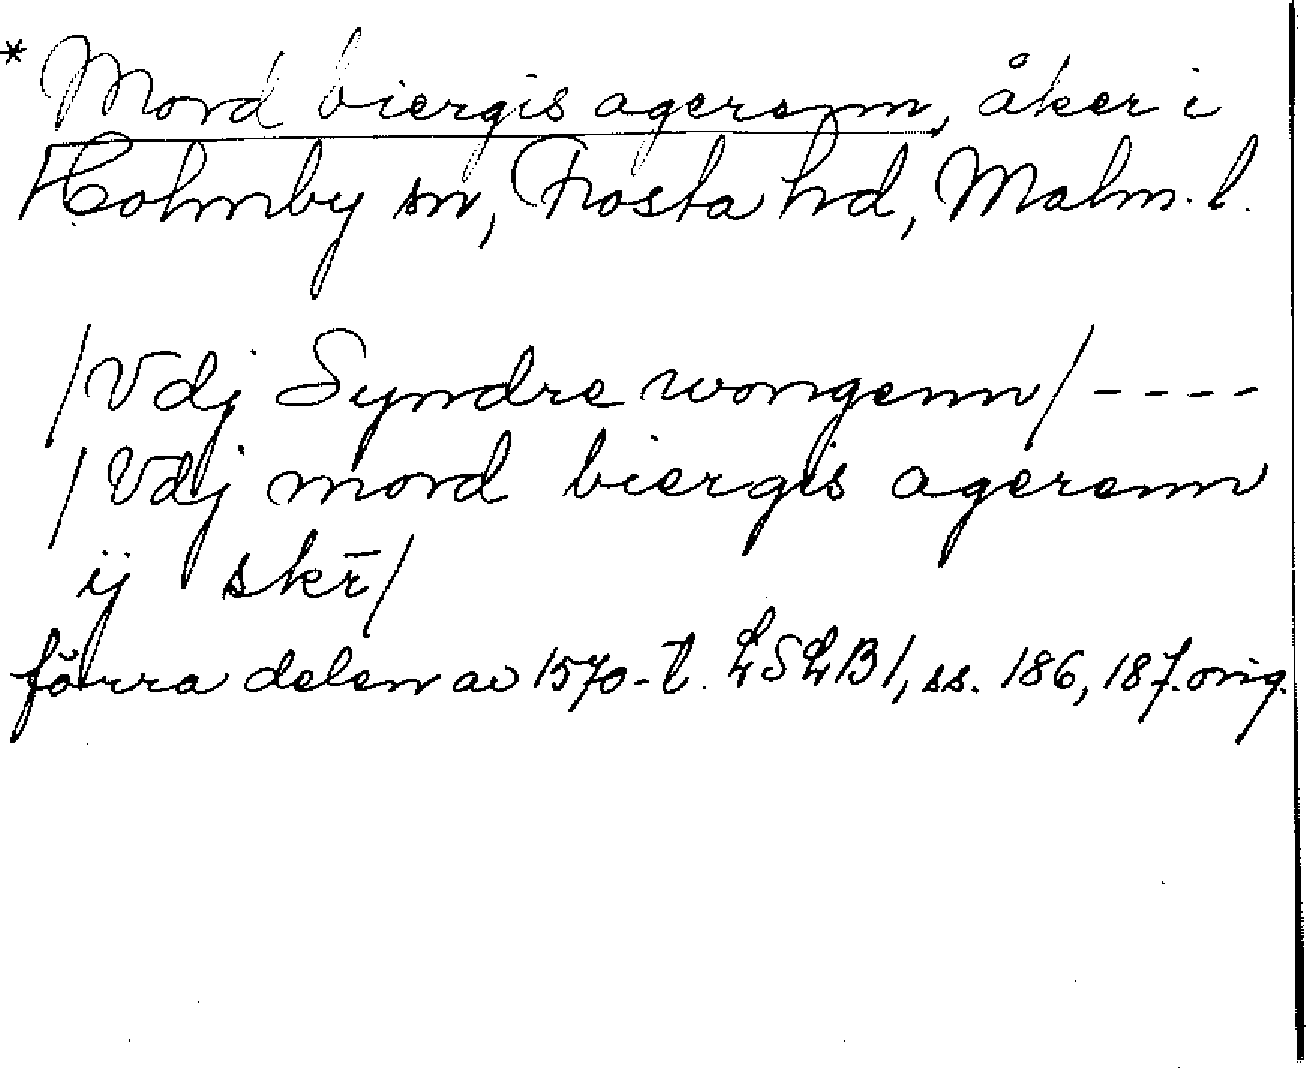 * Mord biergis agerenn, åker i
Holmby sn, Frosta hd, Malm. l.
/Vdj Syndre wongenn/ ----
/Vdj mord biergis agerenn
ij skr̄/
förra delen av 1570-t. LSLB1, ss. 186, 187. orig.